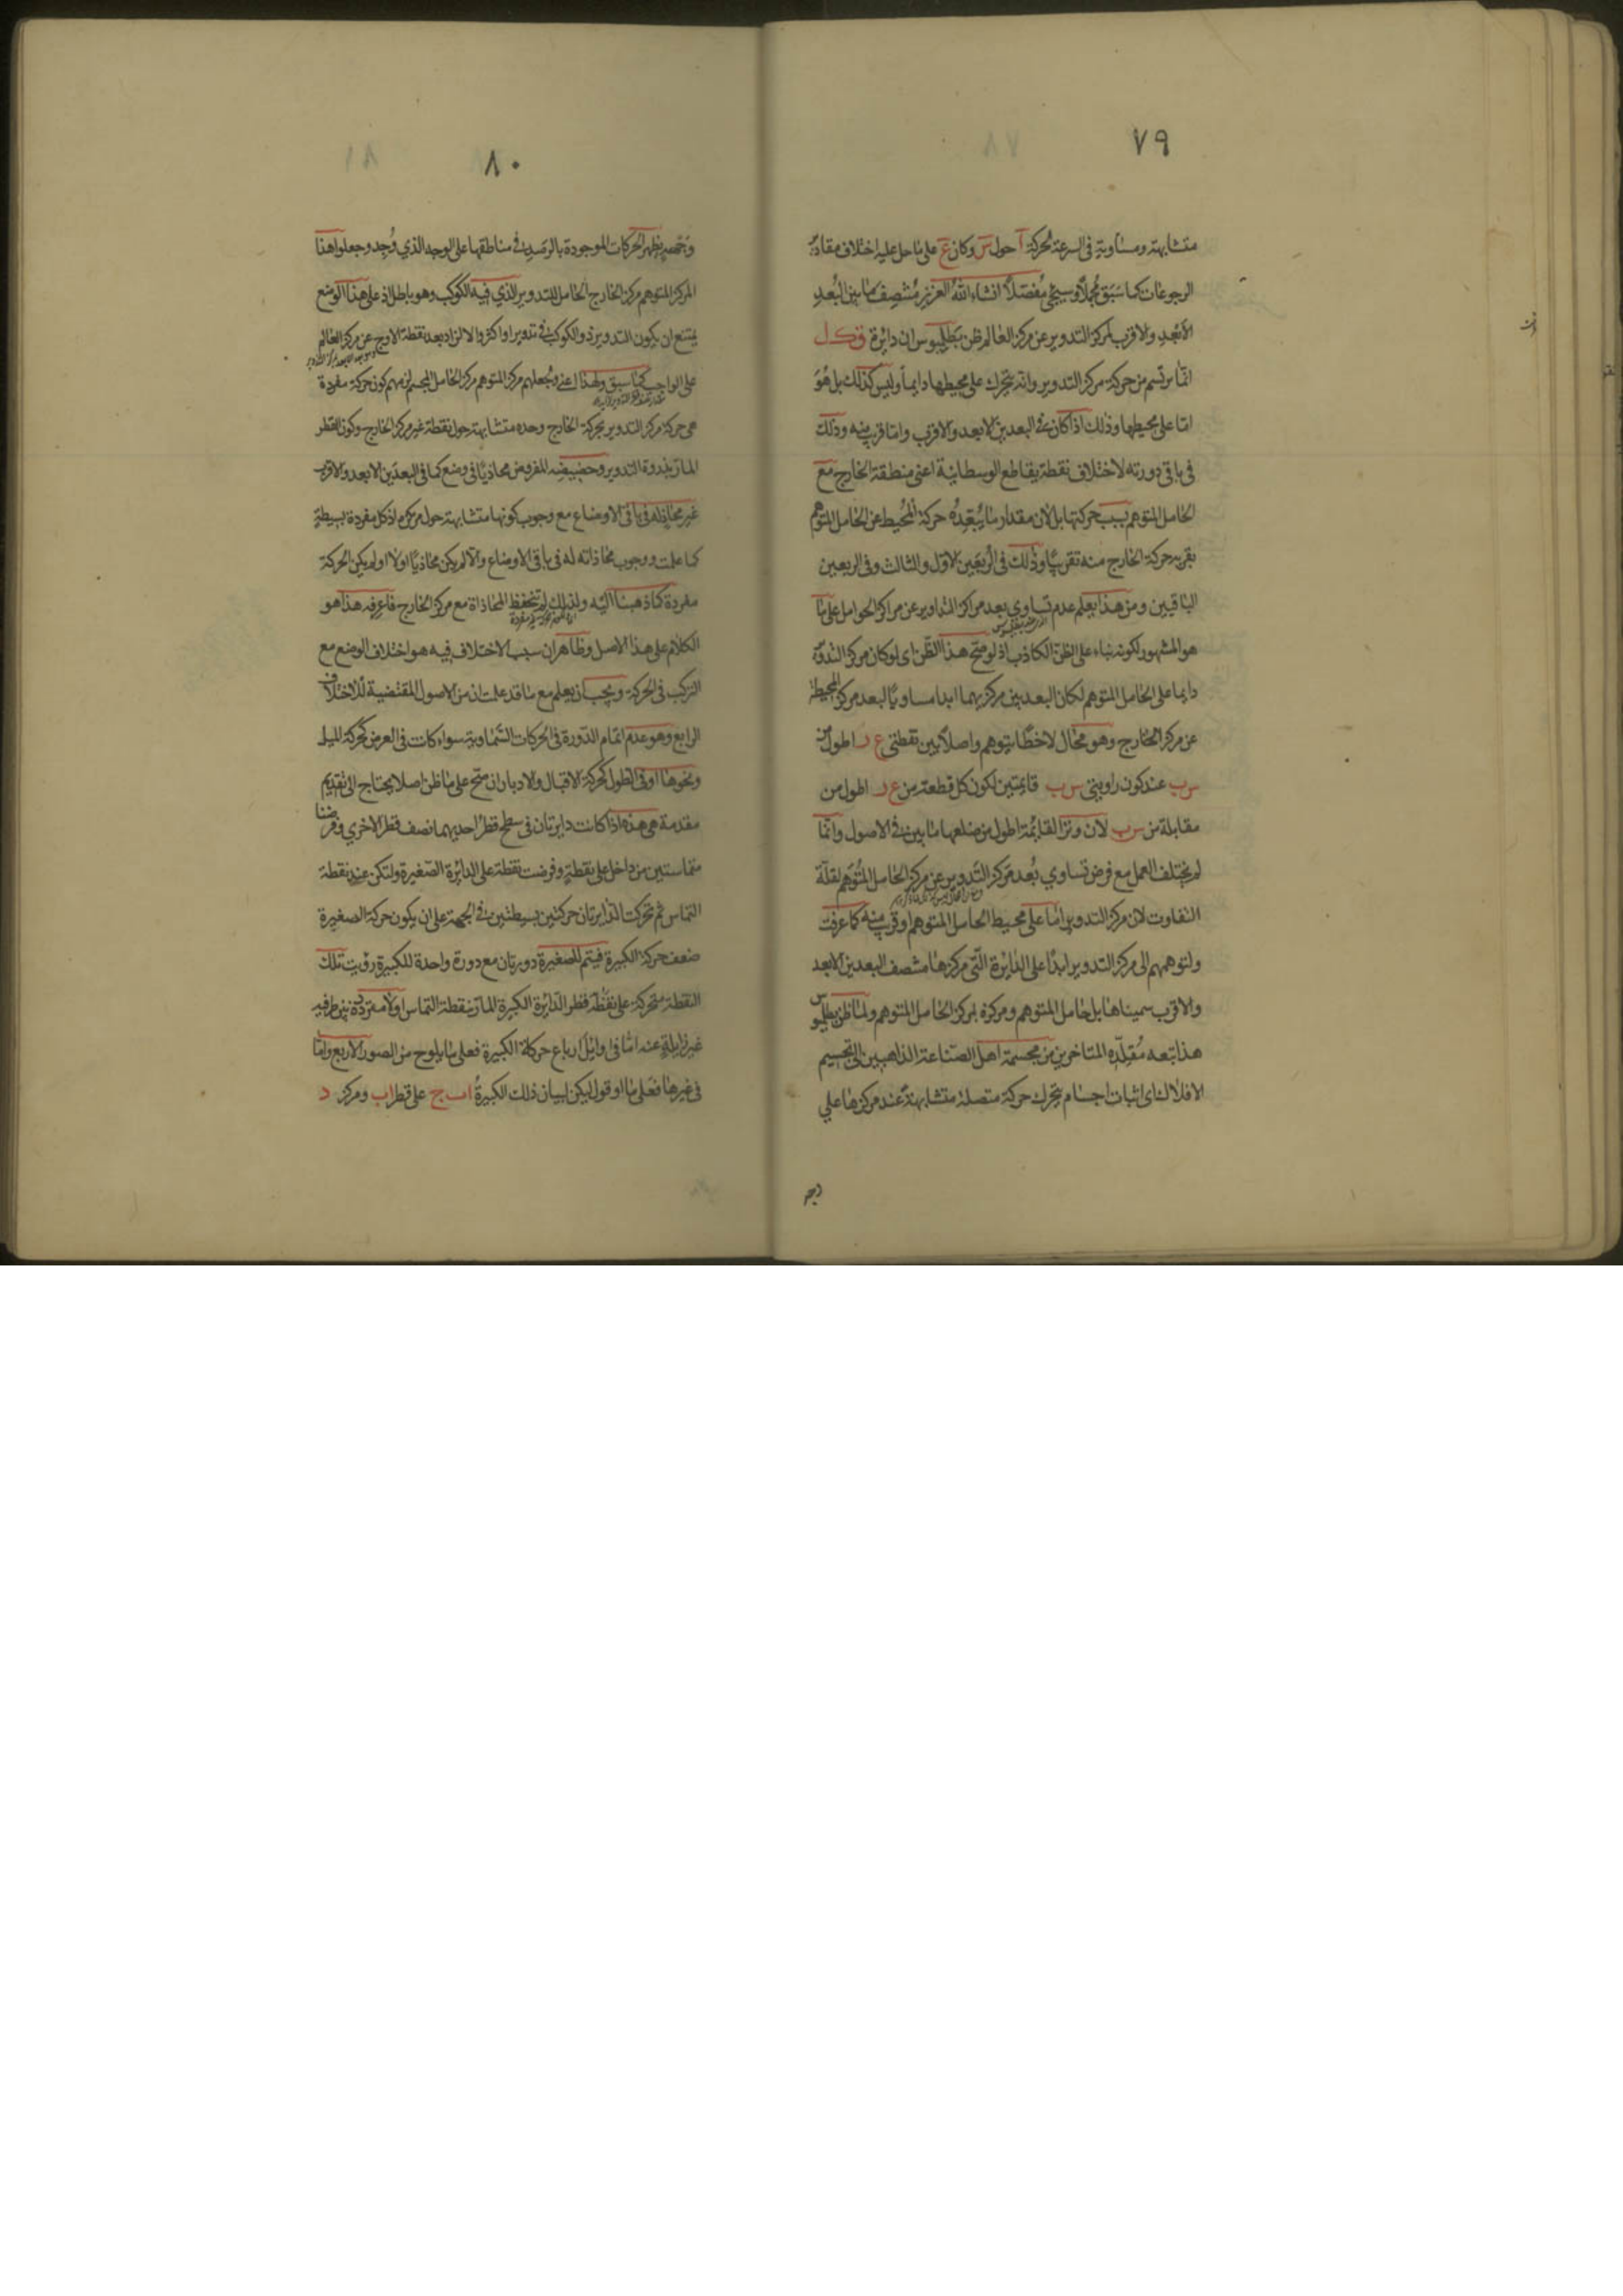 ٧٩
متشابهة ومساوية فى السرعة لحركة آ حول س وكان ع على ما حل عليه اختلاف مقادير
الرجوعات كما سبق مجملا وسيجئ مفصلا انشاء الله العزيز منتصف ما بين البعد
الابعد والاقرب لمركز التدوير عن مركز العالم ظن بطلميوس ان دائرة ف ك ل
انما يرتسم من حركة مركز التدوير وانه يتحرك على محيطها دايما وليس كذلك بل هو
اما على محيطها وذلك اذا كان فى البعدين الابعد والاقرب واما قرب منه وذلك
فى باقى دورته لاختلاف نقطة يقاطع الوسطانية اعنى منطقة الخارج مع
الحامل المتوهم بسبب حركتها بل لان مقدار ما يبعده حركة المحيط عن الحامل المتوهم
يقربه حركة الخارج منه تقريبا وذلك فى الربعين الاول والثالث وفى الربعين
الباقيين ومن هذا يعلم عدم تساوى بعد مراكز التداوير عن مراكز الحوامل على ما
هو المشهور لكونه بناء على الظن الكاذب اذ لو صح هذا الظن اى لو كان مركز التدوير
دايما على الحامل المتوهم لكان البعد بين مركزيهما ابدا مساويا لبعد مركز المحيطة
عن مركز الخارج وهو محال لاخطا يتوهم واصلا بين نقطتى ع ر اطول من
س ب عند كون زاويتى س ب قايمتين لكون كل قطعة من ع ر اطول من
مقابلة من س ب لان وتر القائمة اطول من ضلعها ما بين فى الاصول وانما
لم يختلف العمل مع فرض تساوى بعد مركز التدوير عن مركز الحامل المتوهم لقلة
التفاوت لان مركز التدوير اما على محيط الحامل المتوهم او قرب منه كما عرفت
ولتوهمهم الى مركز التدوير ابدا على الدائرة التى مركزها منتصف البعدين الابعد
والاقرب سميناها بل حامل المتوهم ومركزه بمركز الحامل المتوهم ولما ظن بطلميوس
هذا تبعه مقلده المتاخرين من مجسمة اهل الصناعة الذاهبين الى تجسيم
الافلاك اى اثبات اجسام يتحرك حركة متصلة متشابهة عند مركزها على
٨٠
يظهر الحركات الموجودة بالرصد فى مناطقها على الوجه الذى وجد وجعلوا هذا
المركز المتوهم مركز الخارج الحامل للتدوير الذى فيه الكوكب وهو باطل اذ على هذا الوضع
يمتنع ان يكون التدوير ذو الكوكب فى تدوير او اكثر والا لزاد بعد نقطة الاوج عن مركز العالم
على الواجب كما سبق ولهذا اعنى وجعلهم مركز المتوهم مركز الحامل المجسم لزمهم كون حركة مفردة
هى حركة مركز التدوير بحركة الخارج وحده متشابهة حول نقطة غير مركز الخارج وكون القطر
المار بذروة التدوير وحضيضه المفروض محاذيا فى وضع كما فى البعدين الابعد والاقرب
غير محاذ له فى باقى الاوضاع مع وجوب كونها متشابهة حول مركزه اذ كل مفردة بسيطة
كما علمت ووجوب محاذاته له فى باقى الاوضاع والا لم يكن محاذيا اولا او لم يكن الحركة
مفردة كما ذهبنا اليه ولذلك لم تنحفظ المحاذاة مع مركز الخارج فاعرفه هذا هو
الكلام على هذا الاصل وظاهر ان سبب الاختلاف فيه هو اختلاف الوضع مع
التركب فى الحركة ويجب ان يعلم مع ما قد علمت ان من الاصول المقتضية للاختلاف
الرابع وهو عدم اتمام الدورة فى الحركات السماوية سواء كات فى العرض كحركة الميل
ونحوها او فى الطول كحركة الاقبال والادبار ان صح على ما ظن اصلا يحتاج الى تقديم
مقدمة هى هذه اذا كانت دايرتان فى سطح قطر احديهما نصف قطر الاخرى وفرضنا
متماستين من داخل على نقطة وفرضت نقطة على الدائرة الصغيرة ولتكن عند نقطة
التماس ثم تحركت الدايرتان حركتين بسيطتين فى الجهة على ان يكون حركة الصغيرة
ضعف حركة الكبيرة فيتم للصغيرة دورتان مع دورة واحدة للكبيرة رؤيت تلك
النقطة متحركة على قطر الدائرة الكبيرة المار بنقطة التماس اولا مترددة بين طرفيه
غير زايلة عنه اما فى اوايل ارباع حركات الكبيرة فعلى ما يلوح من الصور الاربع واما
فى غيرها فعلى ما اقول ليكن لبيان ذلك الكبيرة ا ب ج على قطر ا ب ومركز د